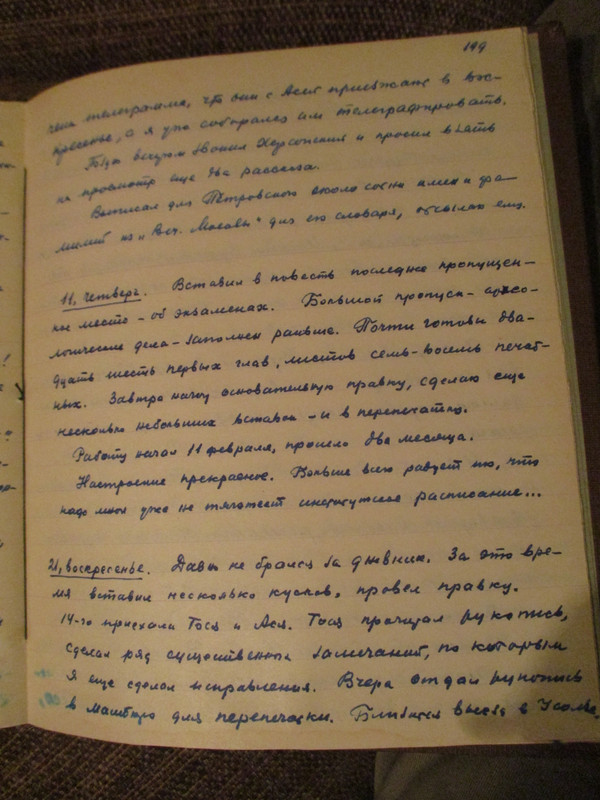 199
чена телеграмма, что они с Асей приезжают в вос-
кресенье, а я уже собирался им телеграфировать.
Тогда вечером звонил Херсонский и просил взять
на просмотр еще два рассказа.
Выписал для Петровского около сотни имен и фа-
милий из „Веч. Москвы" для его словаря, отсылаю ему.
11, четверг. Вставил в повесть последнее пропущен-
ное место - об экзаменах. Большой пропуск -
логические дела - заполнен раньше. Почти готовы два-
дцать шесть первых глав, листов семь-восемь печат-
ных. Завтра начну основательную правку, сделаю еще
несколько небольших вставок - и в перепечатку.
Работу начал 11 февраля, прошло два месяца.
Настроение прекрасное. Больше всего радует то, что
надо мной уже не тяготеет институтское расписание...
21, воскресенье. Давно не брался за дневник. За это вре-
мя вставил несколько кусков, провел правку.
14-го приехали Тося и Ася. Тося прочитал рукопись,
сделал ряд существенных замечаний, по которым
я еще сделал исправления. Вчера отдал рукопись
в машбюро для перепечатки. Близится выезд в Усолье,